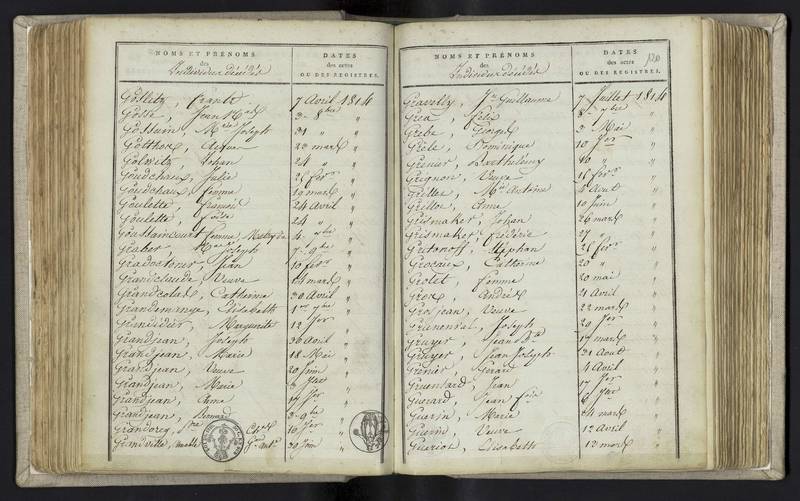 NOMS ET PRÉNOMS
des
Individus décédés
DATES
des actes
OU DES REGISTRES.
Gollitz, Frantz 7 Avril 1814
Gosse, Jean 3 8bre "
Gossuin, Mie Joseph 31 " "
Gotthor, 23 mars "
Gotwitz, Johan 24 " "
Goudchaux, Julie 26 fevr "
Goudchaux, femme 19 mars "
Goulette, francois 24 Avril "
Goulette, 24 " "
Goussaincourt, femme 4 "
Graber, Joseph 7 9bre "
Jean 10 fevr "
Grandclaude, Veuve 14 mars "
Grandcolas, Catherine 30 Avril "
Grandemange, Elisabeth 1er "
Grandidier, Marguerite 12 Jer "
Grandjean, Joseph 26 avril "
Grandjean, Marie 18 Mai "
Grandjean, Veuve 20 Juin "
Grandjean, Marie "
Grandjean, Anna 14 Jer "
Grandjean, Bernard 3 9bre "
16 Jer "
Grandville, 29 Juin "
NOMS ET PRÉNOMS
des
Individus décédés
DATES
des actes
OU DES REGISTRES.
120
Gravelly, Jn Guillaume 7 Juillet 1814
Grea, Felix 8 "
Grebe, George 3 Mai "
Grele, Dominique 10 Jer "
Grenier, Barthelemy 16 " "
Greignon, Veuve 16 fevr "
Antoine 5 Aout "
Anne 10 Juin "
Grismaker, Johan 26 mars "
Grismaker, fréderic 27 " "
Stephan 26 fevr "
Grocaux, Catherine 20 " "
Grolet, femme 20 mai "
Gros, André 21 Avril "
Grosjean, Veuve 22 mars "
Joseph 29 Jer "
Gruyer, Jean Bte 17 mars "
Gruyer, Jean Joseph 31 Aout "
Grenier, Gerard 4 Avril "
Jean 17 Jer "
Guerard, Jean "
Guerin, Marie 24 mars "
Guerin, Veuve 12 Avril "
Gueriot, Elisabeth 12 mars "